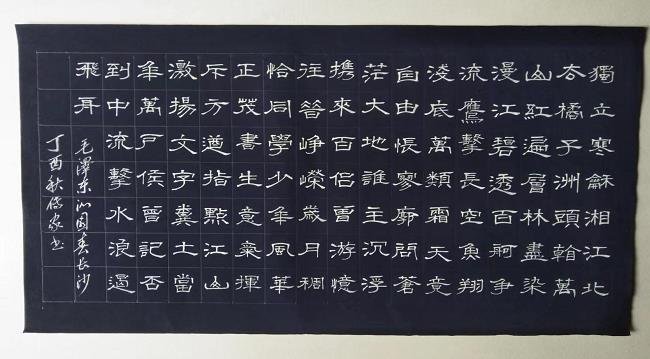 獨立寒龢湘江北
去橘子洲頭翰萬
山紅遍層林盡染
漫江碧透百舸争
流鷹擊長空魚翔
淺底萬類霜天竞
自由悵寥廓問蒼
茫大地誰主沉浮
携來百侣曾游憶
往昔崢嶸歲月稠
恰同學少年風華
正茂書生意氣揮
斥方遒指點江山
激揚文字糞土當
年萬户侯曾記否
到中流擊水浪遏
飛舟
毛澤东沁園春長沙
丁酉秋家书